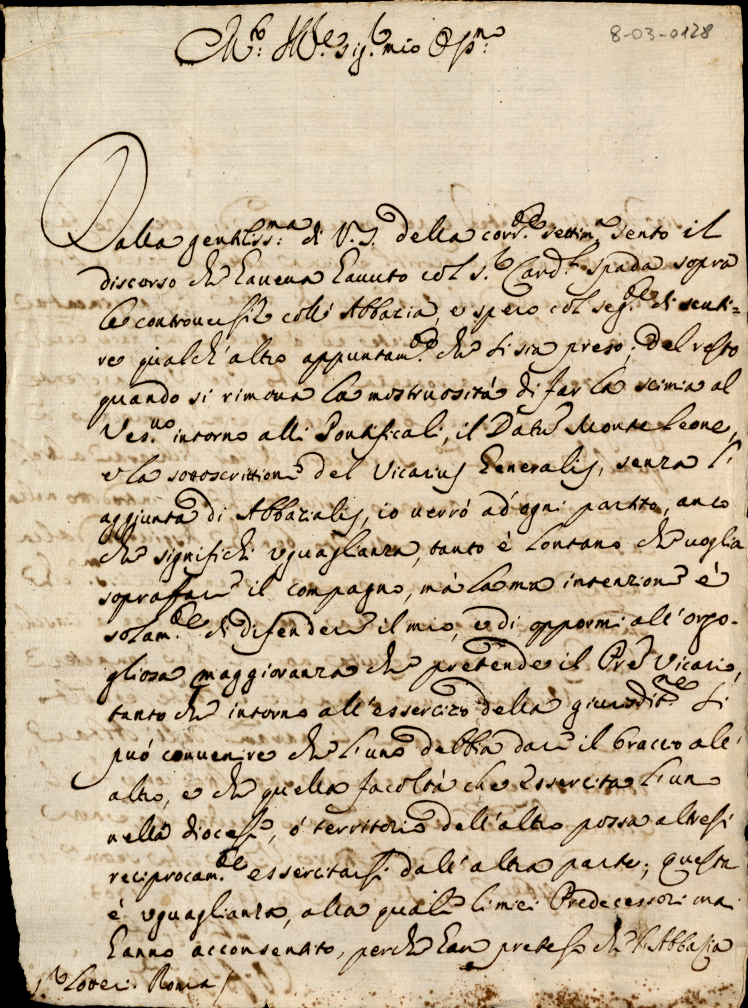 8-03-0128
M.to Ill.e Sig.r mio Oss.mo
Dalla gentiliss.ma di V.S. della cor.te settim.a sento il
discorso che haveva havuto col S.r Card.l Spada sopra
le controversie coll' Abbazia, e spero col seg.te di senti=
re qualch' altro appuntam.to che si sia preso; Del resto
quando si rimova la mostruosità di far la scimia al
Ves.vo intorno alli Pontificali, il Datũ Monte Leone,
e la sottoscrittione del Vicarius Generalis, senza l'
aggiunta di Abbatialis, io verrò ad ogni partito, anco
che significhi uguaglianza, tanto è lontano che voglia
sopraffare il compagno, mà la mia intenzione è
solam.te di difendere il mio, e di oppormi all' orgo-
gliosa maggioranza che pretende il Pre Vicario,
tanto che intorno all' essercizio della giurisdit.ne si
può convenire che l'uno debbia dare il braccio all'
altro, e che quella facoltà che essercita l'un
nella diocesi, ò territorio dell' altro possa altresi
reciprocam.te essercitarsi dall' altra parte; questa
è uguaglianza, alla quale li miei Predecessori mai
hanno acconsentito, perche han preteso che l'Abbazia
Roma